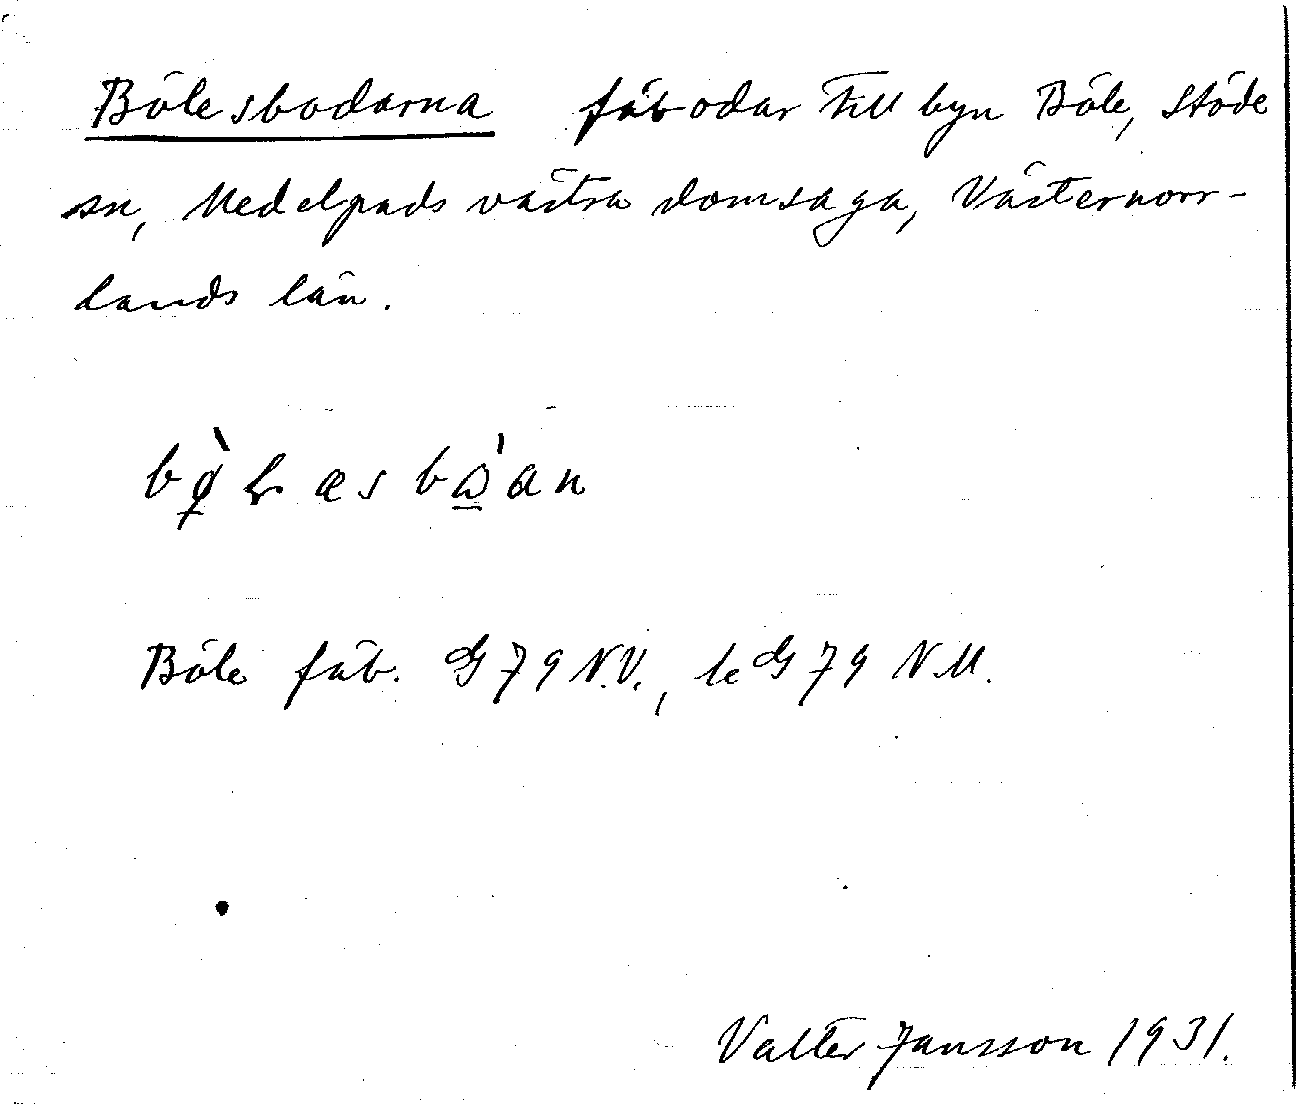 Bölesbodarna fäbodar till byn Böle, Stöde
sn, Medelpads västra domsaga, Västernorr-
lands län.
Böle fäb. G 79 N.V., le G 79 N.M.
Valter Jansson 1931.